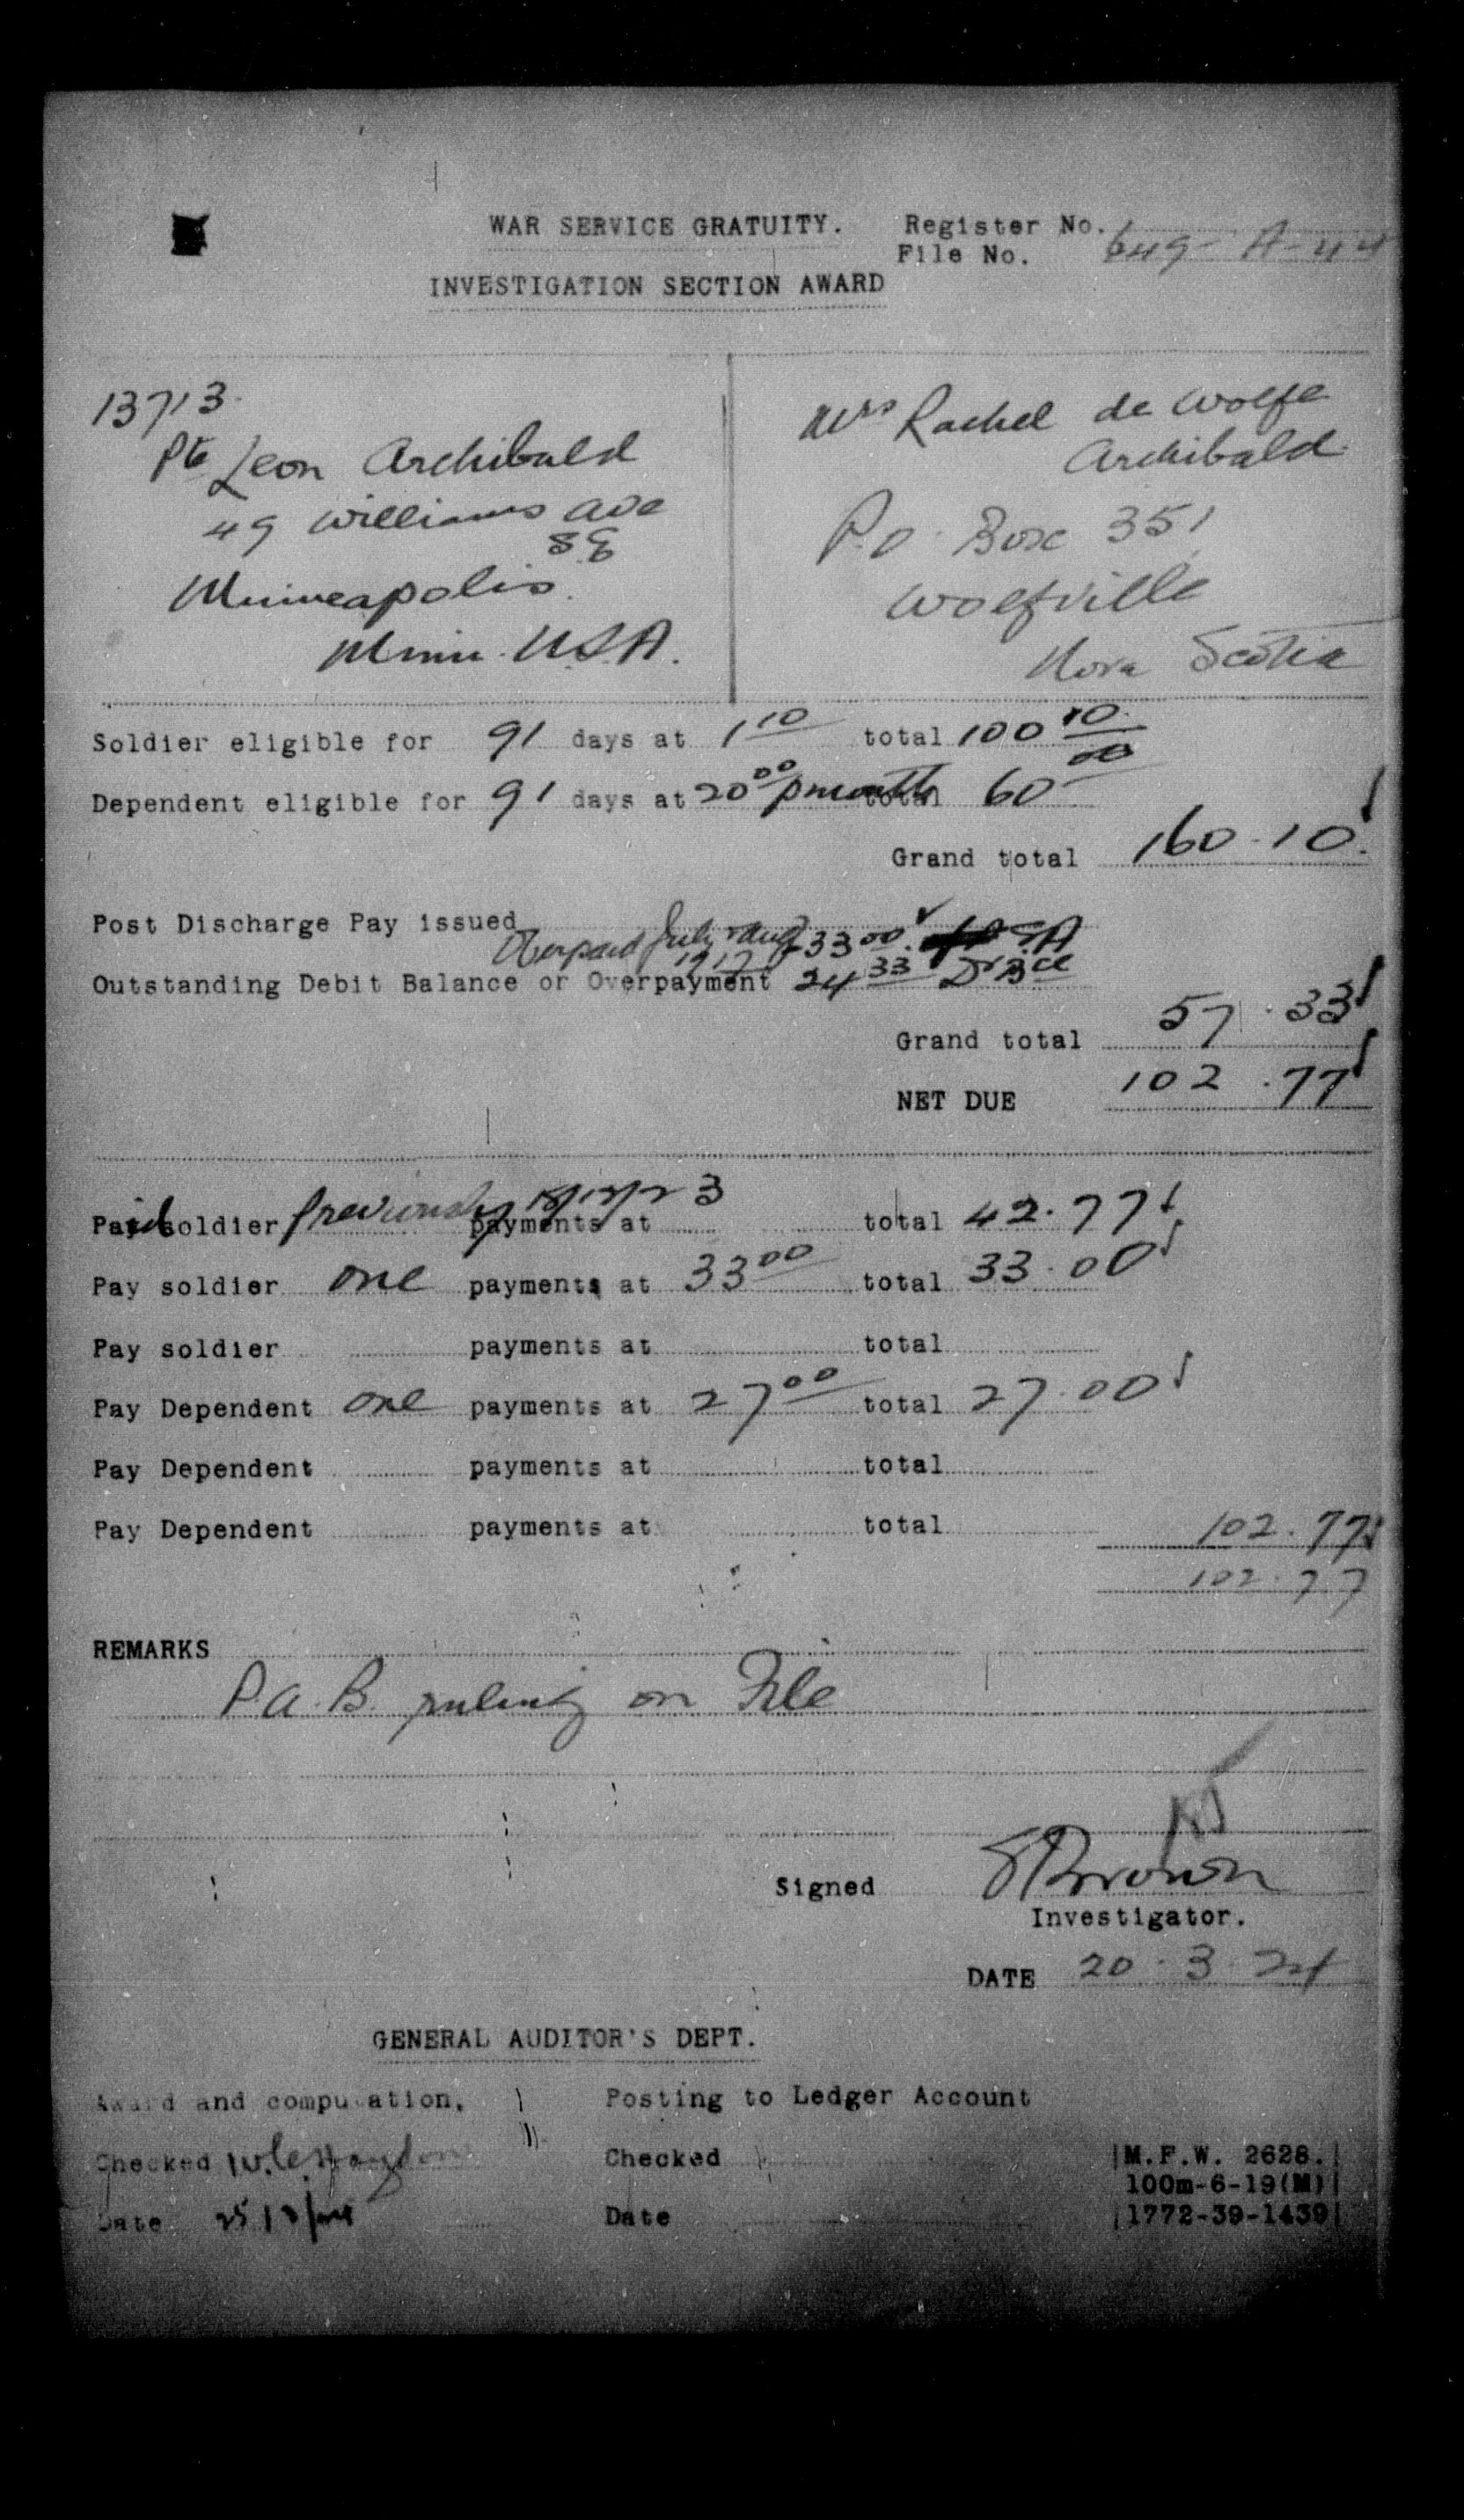 WAR SERVICE GRATUITY. Register No.
File No. 649-A-44
INVESTIGATION SECTION AWARD
13713
Pte Leon Archibald
49 Williams Ave
SE
Minneapolis.
Minn. USA.
Mrs Rachel de Wolfe
Archibald.
P.O. Box 351
Wolfville
Nova Scotia
Soldier eligible for 91 days at 1 10 total 100 10
Dependent eligible for 91 days at 20 00 p month total 60 00
Grand total 160.10
Post Discharge Pay issued
Overpaid July & Aug 1917 33 00 SA
Outstanding Debit Balance or Overpayment 24 33 Dr Bce
Grand total 57.33
NET DUE 102.77
Paid soldier previously 18/12/23 payments at total 42.77
Pay soldier one payments at 33 00 total 33.00
Pay soldier payments at total
Pay Dependent one payments at 27 00 total 27.00
Pay Dependent payments at total
Pay Dependent payments at total 102.77
102.77
REMARKS
P.A.B. ruling on File
Signed Brown
Investigator.
DATE 20.3.24
GENERAL AUDITOR'S DEPT.
Award and computation, Posting to Ledger Account
Checked Checked
Date Date
M.F.W. 2628.
100m-6-19(M)
1772-39-1439